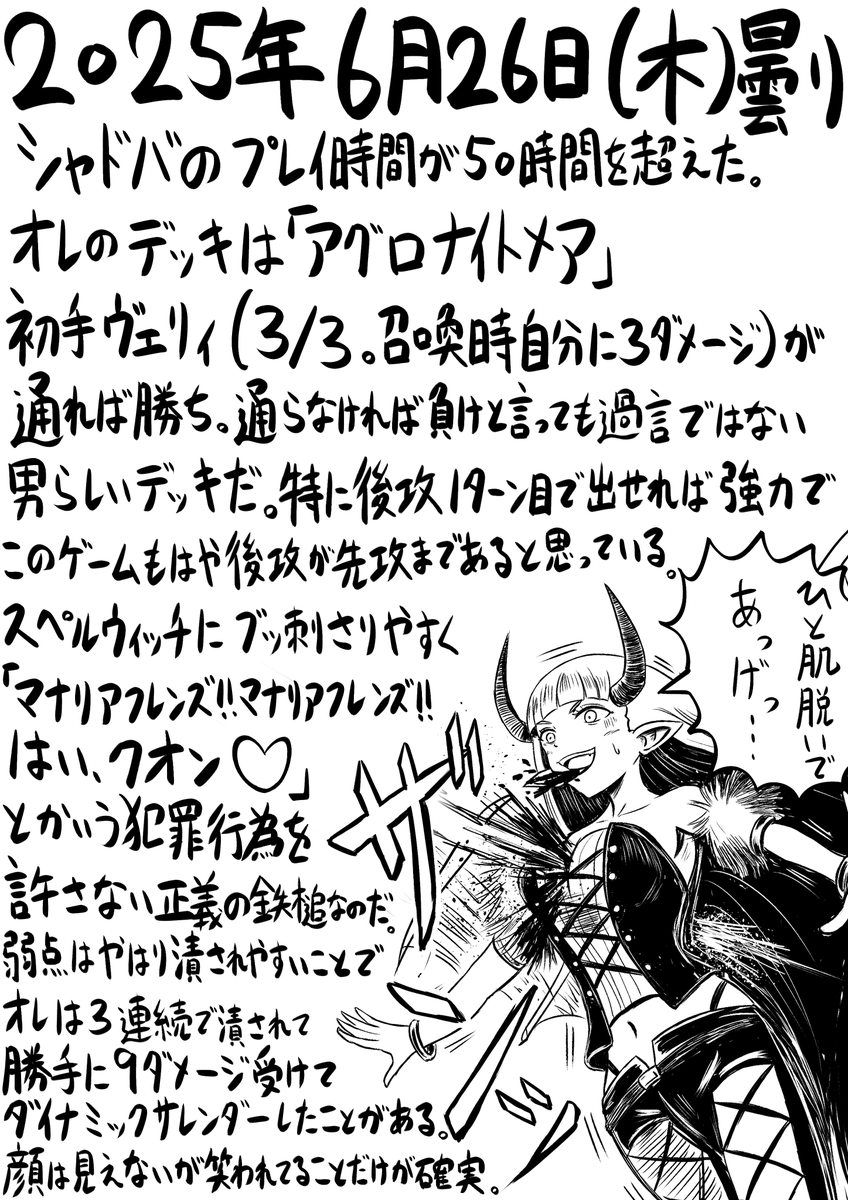 2025年6月26日(木)曇り
シャドバのプレイ時間が50時間を超えた。
オレのデッキは「アグロナイトメア」
初手ヴェリィ(3/3。召喚時自分に3ダメージ)が
通れば勝ち。通らなければ負けと言っても過言ではない
男らしいデッキだ。特に後攻1ターン目で出せれば強力で
このゲームもはや後攻が先攻まであると思っている。
スペルウィッチにブッ刺さりやすく
「マナリアフレンズ!!マナリアフレンズ!!
はい、クオン♡」
とかいう犯罪行為を
許さない正義の鉄槌なのだ。
弱点はやはり潰されやすいことで
オレは3連続で潰されて
勝手に9ダメージ受けて
ダイナミックサレンダーしたことがある。
顔は見えないが笑われてることだけが確実。
ひと肌脱いで
あっげっ…
ザッ